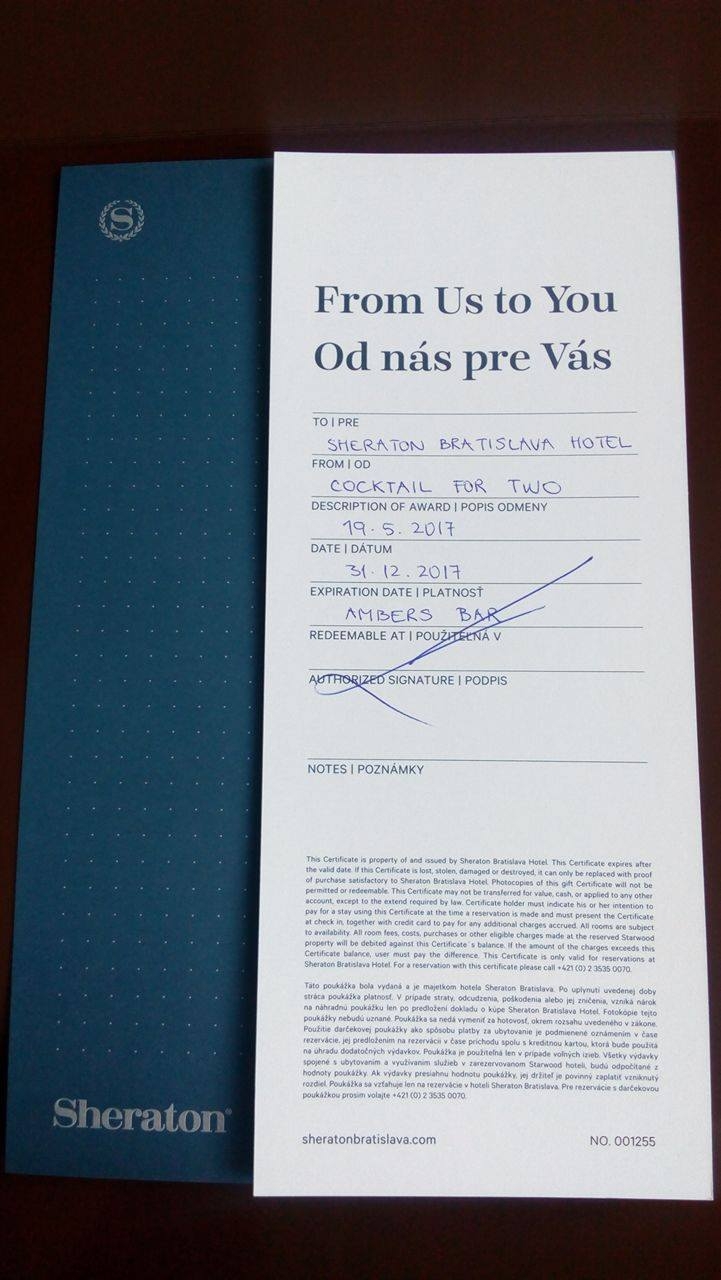 S
From Us to You
Od nás pre Vás
TO | PRE
SHERATON BRATISLAVA HOTEL
FROM | OD
COCKTAIL FOR TWO
DESCRIPTION OF AWARD | POPIS ODMENY
19.5.2017
DATE | DÁTUM
31.12.2017
EXPIRATION DATE | PLATNOSŤ
AMBERS BAR
REDEEMABLE AT | POUŽITEĽNÁ V
AUTHORIZED SIGNATURE | PODPIS
NOTES | POZNÁMKY
This Certificate is property of and issued by Sheraton Bratislava Hotel. This Certificate expires after
the valid date. If this Certificate is lost, stolen, damaged or destroyed, it can only be replaced with proof
of purchase satisfactory to Sheraton Bratislava Hotel. Photocopies of this gift Certificate will not be
permitted or redeemable. This Certificate may not be transferred for value, cash, or applied to any other
account, except to the extend required by law. Certificate holder must indicate his or her intention to
pay for a stay using this Certificate at the time a reservation is made and must present the Certificate
at check in, together with credit card to pay for any additional charges accrued. All rooms are subject
to availability. All room fees, costs, purchases or other eligible charges made at the reserved Starwood
property will be debited against this Certificate´s balance. If the amount of the charges exceeds this
Certificate balance, user must pay the difference. This Certificate is only valid for reservations at
Sheraton Bratislava Hotel. For a reservation with this certificate please call +421 (0) 2 3535 0070.
Táto poukážka bola vydaná a je majetkom hotela Sheraton Bratislava. Po uplynutí uvedenej doby
stráca poukážka platnosť. V prípade straty, odcudzenia, poškodenia alebo jej zničenia, vzniká nárok
na náhradnú poukážku len po predložení dokladu o kúpe Sheraton Bratislava Hotel. Fotokópie tejto
poukážky nebudú uznané. Poukážka sa nedá vymeniť za hotovosť, okrem rozsahu uvedeného v zákone.
Použitie darčekovej poukážky ako spôsobu platby za ubytovanie je podmienené oznámením v čase
rezervácie, jej predložením na rezervácii v čase príchodu spolu s kreditnou kartou, ktorá bude použitá
na úhradu dodatočných výdavkov. Poukážka je použiteľná len v prípade voľných izieb. Všetky výdavky
spojené s ubytovaním a využívaním služieb v zarezervovanom Starwood hoteli, budú odpočítané z
hodnoty poukážky. Ak výdavky presiahnu hodnotu poukážky, jej držiteľ je povinný zaplatiť vzniknutý
rozdiel. Poukážka sa vzťahuje len na rezervácie v hoteli Sheraton Bratislava. Pre rezervácie s darčekovou
poukážkou prosím volajte +421 (0) 2 3535 0070.
Sheraton®
sheratonbratislava.com NO. 001255